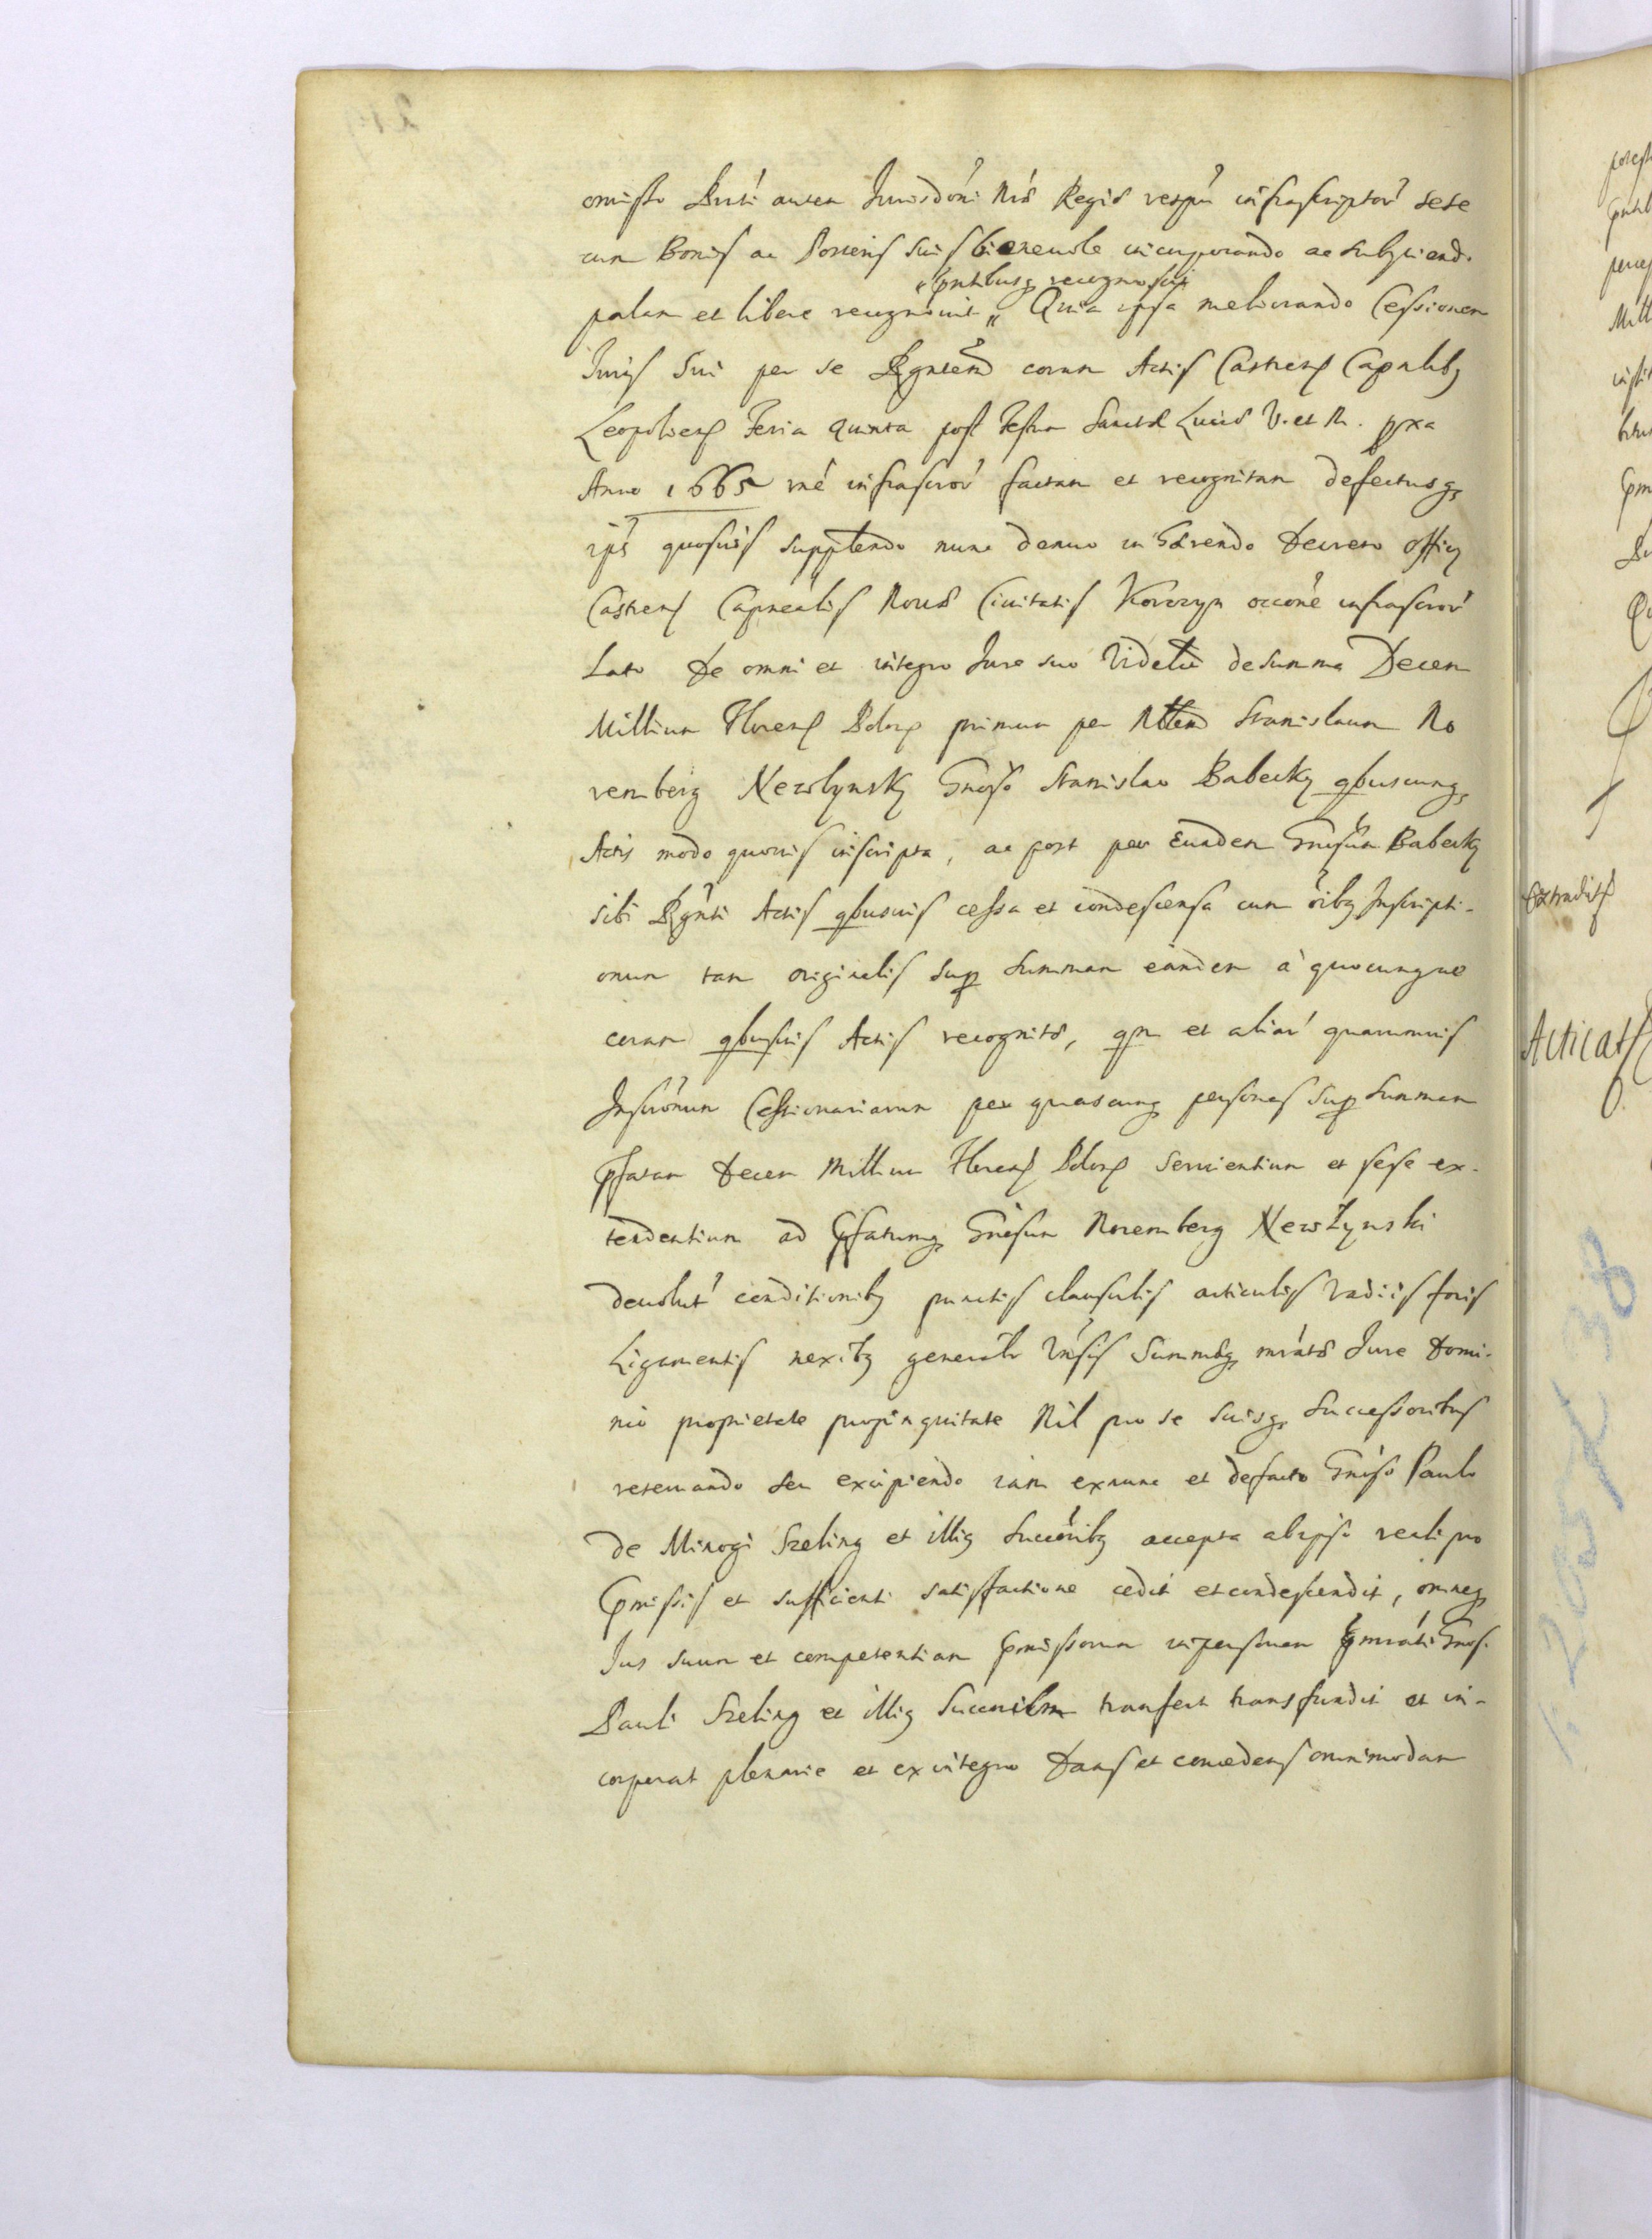 omisso Pnti autem Jurisdóni Nrӕ Regiӕ respu infrascriptor sese
cum Bonis ac Posteris suis bienevole incorporando ac subijciend.
pntibusq recognoscit
palam et libere recognovit „ Quia ipsa meliorando Cessionem
Juris sui per se Rgntem coram Actis Castren Capnlibq
Leopolien Feria Quinta post Festum Sanctӕ Luciӕ V. et M. pxa
Anno 1665 rné infrascror factam et recognitam defectusq
ips quosuis supplendo nunc denuo inhӕrendo Decreto Officij
Castren Capnealis Nouӕ Ciuitatis Korczyn occóne infrascror
Lato De omni et integro Jure suo Videlt de summa Decem
Millium Floren Polon primum per Mttem Stanislaum No
remberg Newlynsky Gnoso Stanislao Babecky qbuscunq
Actis modo quouis inscripta, ac post per Eundem Gnosum Babecky
sibi Rgnti Actis qbusuis cessa et condescensa cum oibq Inscripti-
onum tam originalis sup summam eandem à quocunque
coram qbusuis Actis recognitӕ, qm et aliar quarumuis
Inscrónum Cessionariarum per quascunq personas sup summam
pfatam Decem Millium Floren Polon seruientium et sese ex-
tendentium ad pfatumq Gnosum Noremberg Newlynski
deuolut conditionibq punctis clausulis articulis vadiis foris
Ligamentis nexibq generalr Vnsis summӕq mratӕ Jure Domi-
nio proprietate propinquitate Nil pro se suisq Successoribus
reseruando seu excipiendo iam exnunc et defacto Gnoso Paulo
de Minogi Szeling et illiq Succóribq accepta ab ipso reali pro
pmissis et sufficienti satisfactione cedit et condescendit, omneq
Jus suum et competentiam pmissorum in personam pmrati Gnos.
Pauli Szeling et illiq Succorum transfert transfundit et in-
corporat plenarie et ex integro Dans et concedens omnimodam
Extradit
Acticat